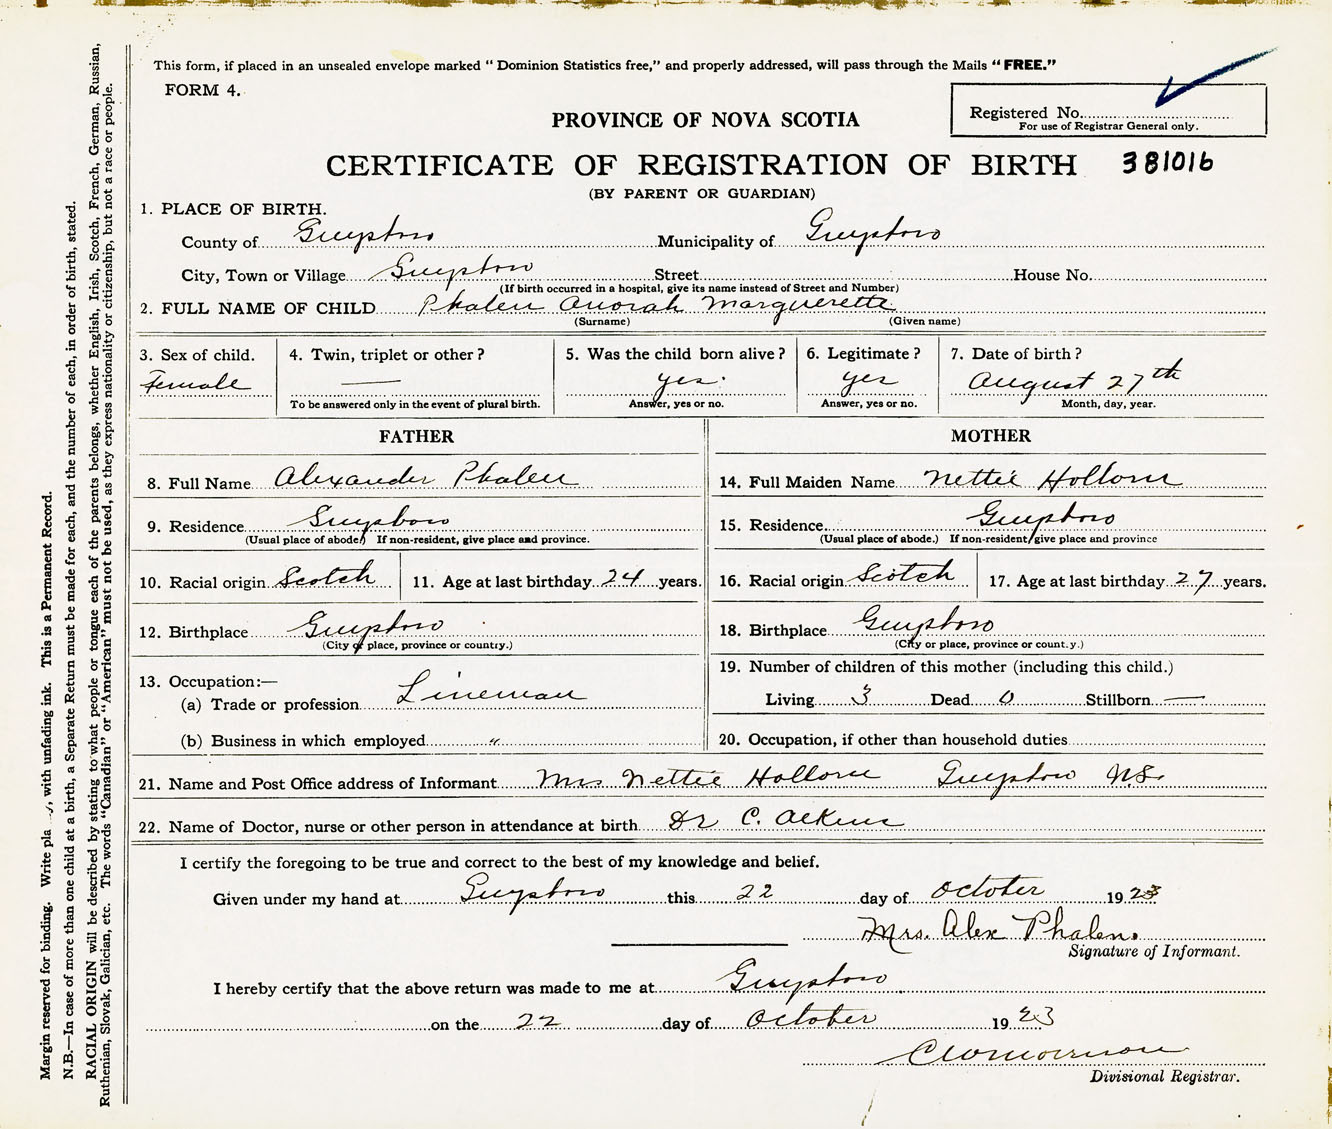 This form, if placed in an unsealed envelope marked " Dominion Statistics free," and properly addressed, will pass through the Mails " FREE."
FORM 4.
Registered No.
For use of Registrar General only.
PROVINCE OF NOVA SCOTIA
CERTIFICATE OF REGISTRATION OF BIRTH 381016
(BY PARENT OR GUARDIAN)
1. PLACE OF BIRTH.
County of Guysboro Municipality of Guysboro
City, Town or Village Guysboro Street House No.
(If birth occurred in a hospital, give its name instead of Street and Number)
2. FULL NAME OF CHILD Phalen Anorah Marguerette
(Surname) (Given name)
3. Sex of child. 4. Twin, triplet or other ? 5. Was the child born alive ? 6. Legitimate ? 7. Date of birth ?
Female — yes. yes August 27th
To be answered only in the event of plural birth. Answer, yes or no. Answer, yes or no. Month, day, year.
FATHER MOTHER
8. Full Name Alexander Phalen 14. Full Maiden Name Nettie Hollorn
9. Residence Guysboro 15. Residence. Guysboro
(Usual place of abode.) If non-resident, give place and province. (Usual place of abode.) If non-resident, give place and province
10. Racial origin Scotch 11. Age at last birthday 24 years. 16. Racial origin Scotch 17. Age at last birthday 27 years.
12. Birthplace Guysboro 18. Birthplace Guysboro
(City or place, province or country.) (City or place, province or count.y.)
13. Occupation:— 19. Number of children of this mother (including this child.)
(a) Trade or profession Lineman Living 3 Dead 0 Stillborn —
(b) Business in which employed " 20. Occupation, if other than household duties
21. Name and Post Office address of Informant Mrs Nettie Hollorn Guysboro N.S.
22. Name of Doctor, nurse or other person in attendance at birth Dr C. Aikens
I certify the foregoing to be true and correct to the best of my knowledge and belief.
Given under my hand at Guysboro this 22 day of October 1923
Mrs. Alex Phalen.
Signature of Informant.
I hereby certify that the above return was made to me at Guysboro
on the 22 day of October 1923
Divisional Registrar.
Margin reserved for binding. Write pla , with unfading ink. This is a Permanent Record.
N.B.—In case of more than one child at a birth, a Separate Return must be made for each, and the number of each, in order of birth, stated.
RACIAL ORIGIN will be described by stating to what people or tongue each of the parents belongs, whether English, Irish, Scotch, French, German, Russian,
Ruthenian, Slovak, Galician, etc. The words "Canadian" or "American" must not be used, as they express nationality or citizenship, but not a race or people.